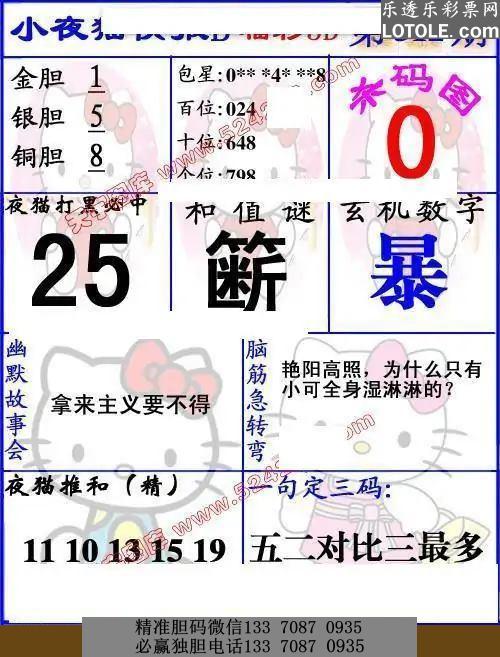 乐透乐彩票网
LOTOLE.COM
小夜猫
第
期
金胆 1
银胆 5
铜胆 8
包星:0** *4* **8
百位:024
十位:648
个位:798
杀码图
0
夜猫打黑必中
25
和值谜
玄机数字
暴
幽默故事会
拿来主义要不得
脑筋急转弯
艳阳高照，为什么只有
小可全身湿淋淋的?
夜猫推和（精）
11 10 13 15 19
一句定三码:
五二对比三最多
天宇图库
精准胆码微信133 7087 0935
必赢独胆电话133 7087 0935